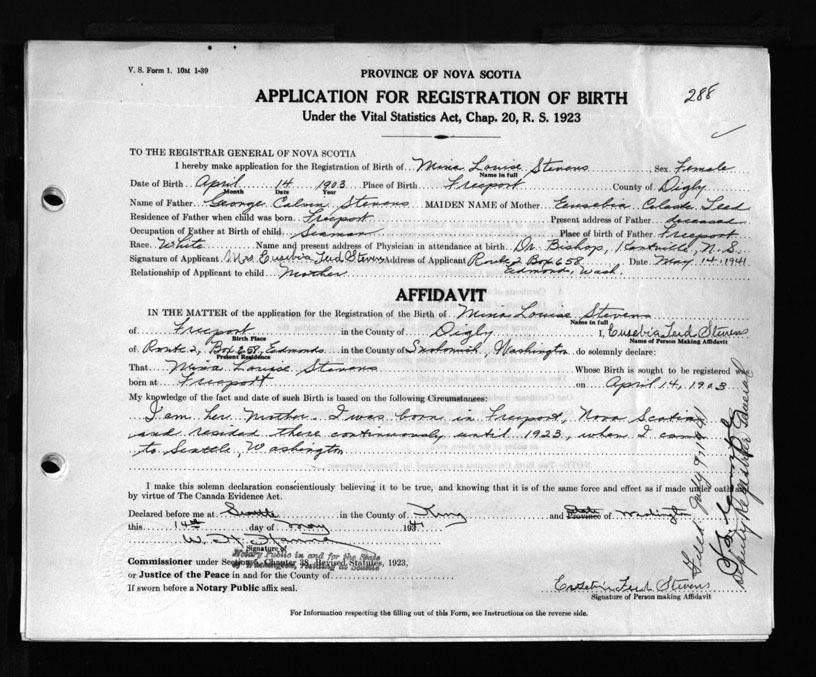 V. S. Form 1. 10M 1-39
PROVINCE OF NOVA SCOTIA
APPLICATION FOR REGISTRATION OF BIRTH
288
Under the Vital Statistics Act, Chap. 20, R. S. 1923
TO THE REGISTRAR GENERAL OF NOVA SCOTIA
I hereby make application for the Registration of Birth of Mina Louise Stevens Sex Female
Name in full
Date of Birth April 14 1903 Place of Birth Freeport County of Digby
Month Date Year
Name of Father George Calvin Stevens MAIDEN NAME of Mother Eusebia Celeste Teed
Residence of Father when child was born Freeport Present address of Father deceased
Occupation of Father at Birth of child Seaman Place of birth of Father Freeport
Race White Name and present address of Physician in attendance at birth Dr. Bishop, Kentville, N. S.
Signature of Applicant Mrs Eusebia Teed Stevens Address of Applicant Route 2 Box 658 Date May 14, 1941
Relationship of Applicant to child Mother Edmonds, Wash.
AFFIDAVIT
IN THE MATTER of the application for the Registration of the Birth of Mina Louise Stevens
Name in full
of Freeport in the County of Digby I, Eusebia Teed Stevens
Birth Place Name of Person Making Affidavit
of Route 2, Box 658, Edmonds in the County of Snohomish, Washington do solemnly declare:
Present Residence
That Mina Louise Stevens Whose Birth is sought to be registered was
born at Freeport on April 14, 1903
My knowledge of the fact and date of such Birth is based on the following Circumstances:
I am her Mother. I was born in Freeport, Nova Scotia
and resided there continuously until 1923, when I came
to Seattle, Washington
I make this solemn declaration conscientiously believing it to be true, and knowing that it is of the same force and effect as if made under oath
by virtue of The Canada Evidence Act.
Declared before me at Seattle in the County of King and State Province of Washington
this 14th day of May 1941
W. H.
Signature of
Notary Public in and for the State
of Washington, Residing at Seattle
Commissioner under Section 6, Chapter 38, Revised Statutes, 1923,
or Justice of the Peace in and for the County of
If sworn before a Notary Public affix seal.
Eusebia Teed Stevens
Signature of Person making Affidavit
For Information respecting the filling out of this Form, see Instructions on the reverse side.
Filed July
Deputy Registrar General